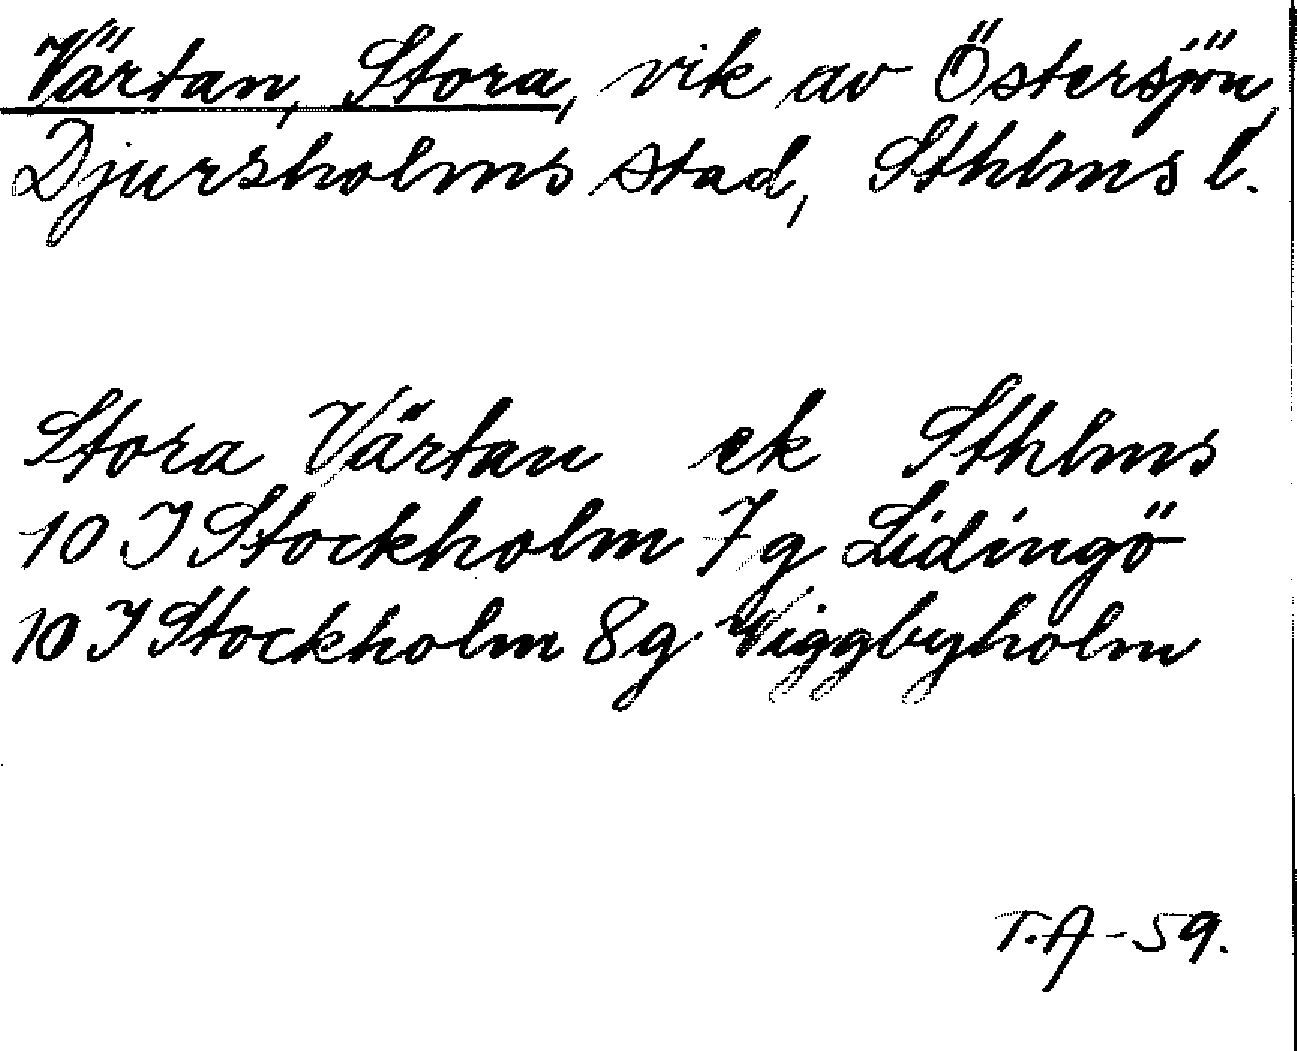 Värtan, Stora, vik av Östersjön,
Djursholms stad, Sthlms l.
Stora Värtan ek Sthlms
10 I Stockholm 7 g Lidingö
10 I Stockholm 8 g Viggbyholm
T.A-59.